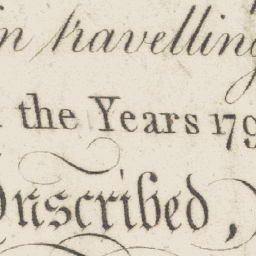 in travelling
the Years 179
Inscribed,